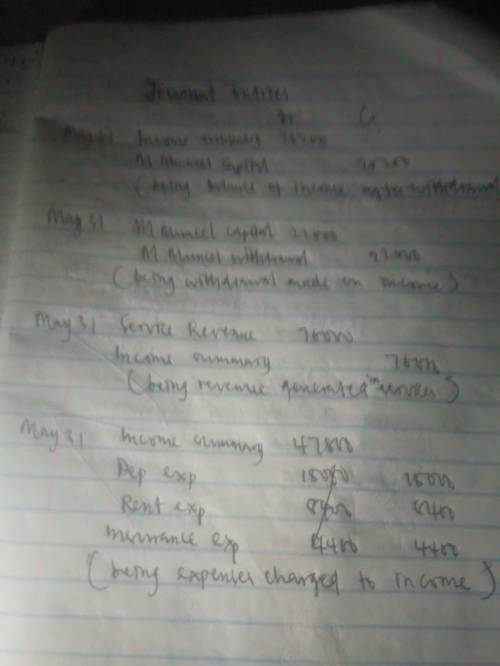 Journal Entries
Dr Cr
May 31 Income summary
M Muncel Capital
(being balance of income after withdrawal
May 31 M Muncel Capital 22000
M Muncel withdrawal 22000
(being withdrawal made on income)
May 31 Service Revenue 76000
Income summary 76000
(being revenue generated in services)
May 31 Income summary
Dep exp 15000
Rent exp
Insurance exp 4400 4400
(being expenses charged to income)